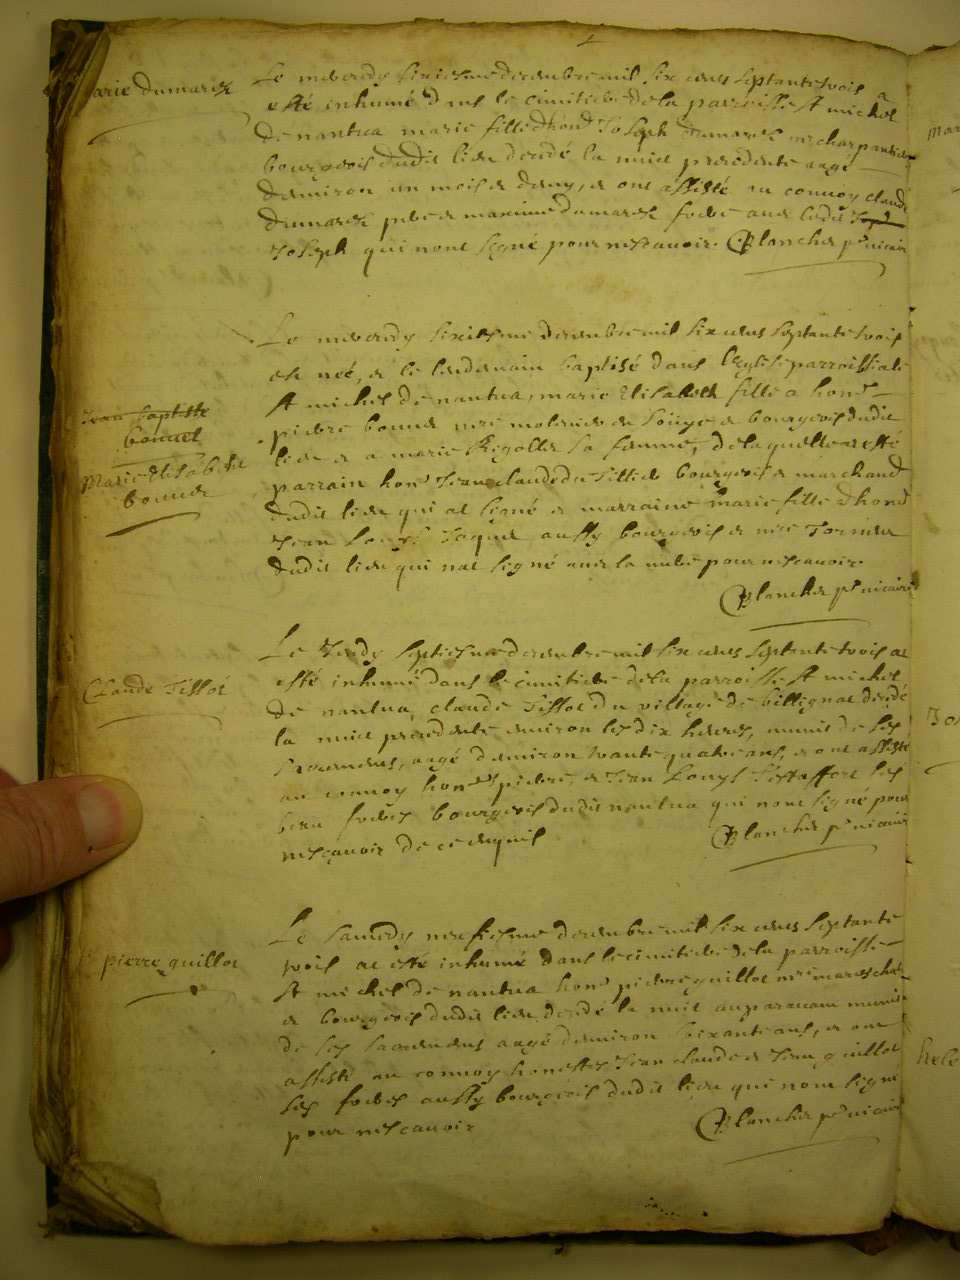 marie dumarest
Le mecredy sixiesme decembre mil six cens septante trois a
esté inhumé dans le cimitiere de la parroisse St michel
de nantua marie fille d'hond Joseph dumarest mre charpentier
bourgeois dudit lieu decedé la nuict precedente aagé
denviron un mois et demy, et ont assisté au convoy claude
dumarest pere et maxime dumarest frere avec ledit
Joseph qui nont signé pour ne scavoir. Blanchet pbre vicaire
Jean baptiste
bonnet
Marie Elisabeth
bonnet
Le mecredy sixiesme decembre mil six cens septante trois
est née, et le lendemain baptisé dans l'esglise parroissiale
St michel de nantua, marie Elisabeth fille a hond
pierre bonnet mre de et bourgeois dudit
lieu et a marie sa femme, de laquelle a esté
parrain hond Jean claude du Tillier bourgeois et marchand
dudit lieu qui at signé et marraine marie fille d'hond
Jean Louys Jaquet aussy bourgeois et mre
dudit lieu qui nat signé avec la mere pour ne scavoir.
Blanchet pbre vicaire
Claude Tissot
Le Jeudy septiesme decembre mil six cens septante trois at
esté inhumé dans le cimitiere de la parroisse St michel
de nantua, claude Tissot du village de billignat decedé
la nuict precedente environ les dix heures, munit de ses
sacremens, aagé denviron trante quatre ans, et ont assisté
au convoy honds pierre, et Jean Louys ses
beau freres bourgeois dudit nantua qui nont signé pour
ne scavoir de ce Blanchet pbre vicaire
pierre guillot
Le samedy neufiesme decembre mil six cens septante
trois at esté inhumé dans le cimitiere de la parroisse
St michel de nantua hond pierre guillot mre mareschal
et bourgeois dudit lieu decedé la nuit auparavant munit
de ses sacremens aagé denviron soixante ans, et ont
assisté au convoy honestes Jean claude et Jean guillot
ses freres aussy bourgeois dudit lieu qui nont signé
pour ne scavoir Blanchet pbre vicaire